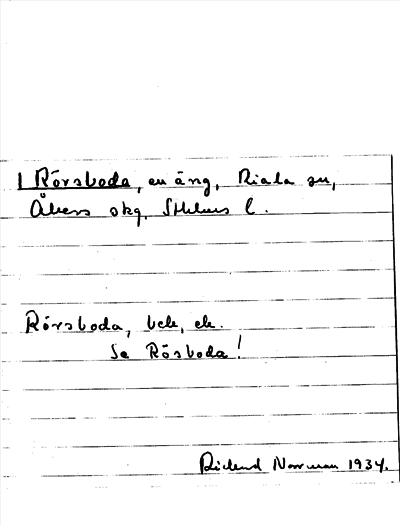 Rörsboda, en äng, Riala sn,
Åkers skg, Sthlms l.
Rörsboda, bek, ek.
Se Rösboda!
Rickard Norrman 1934.